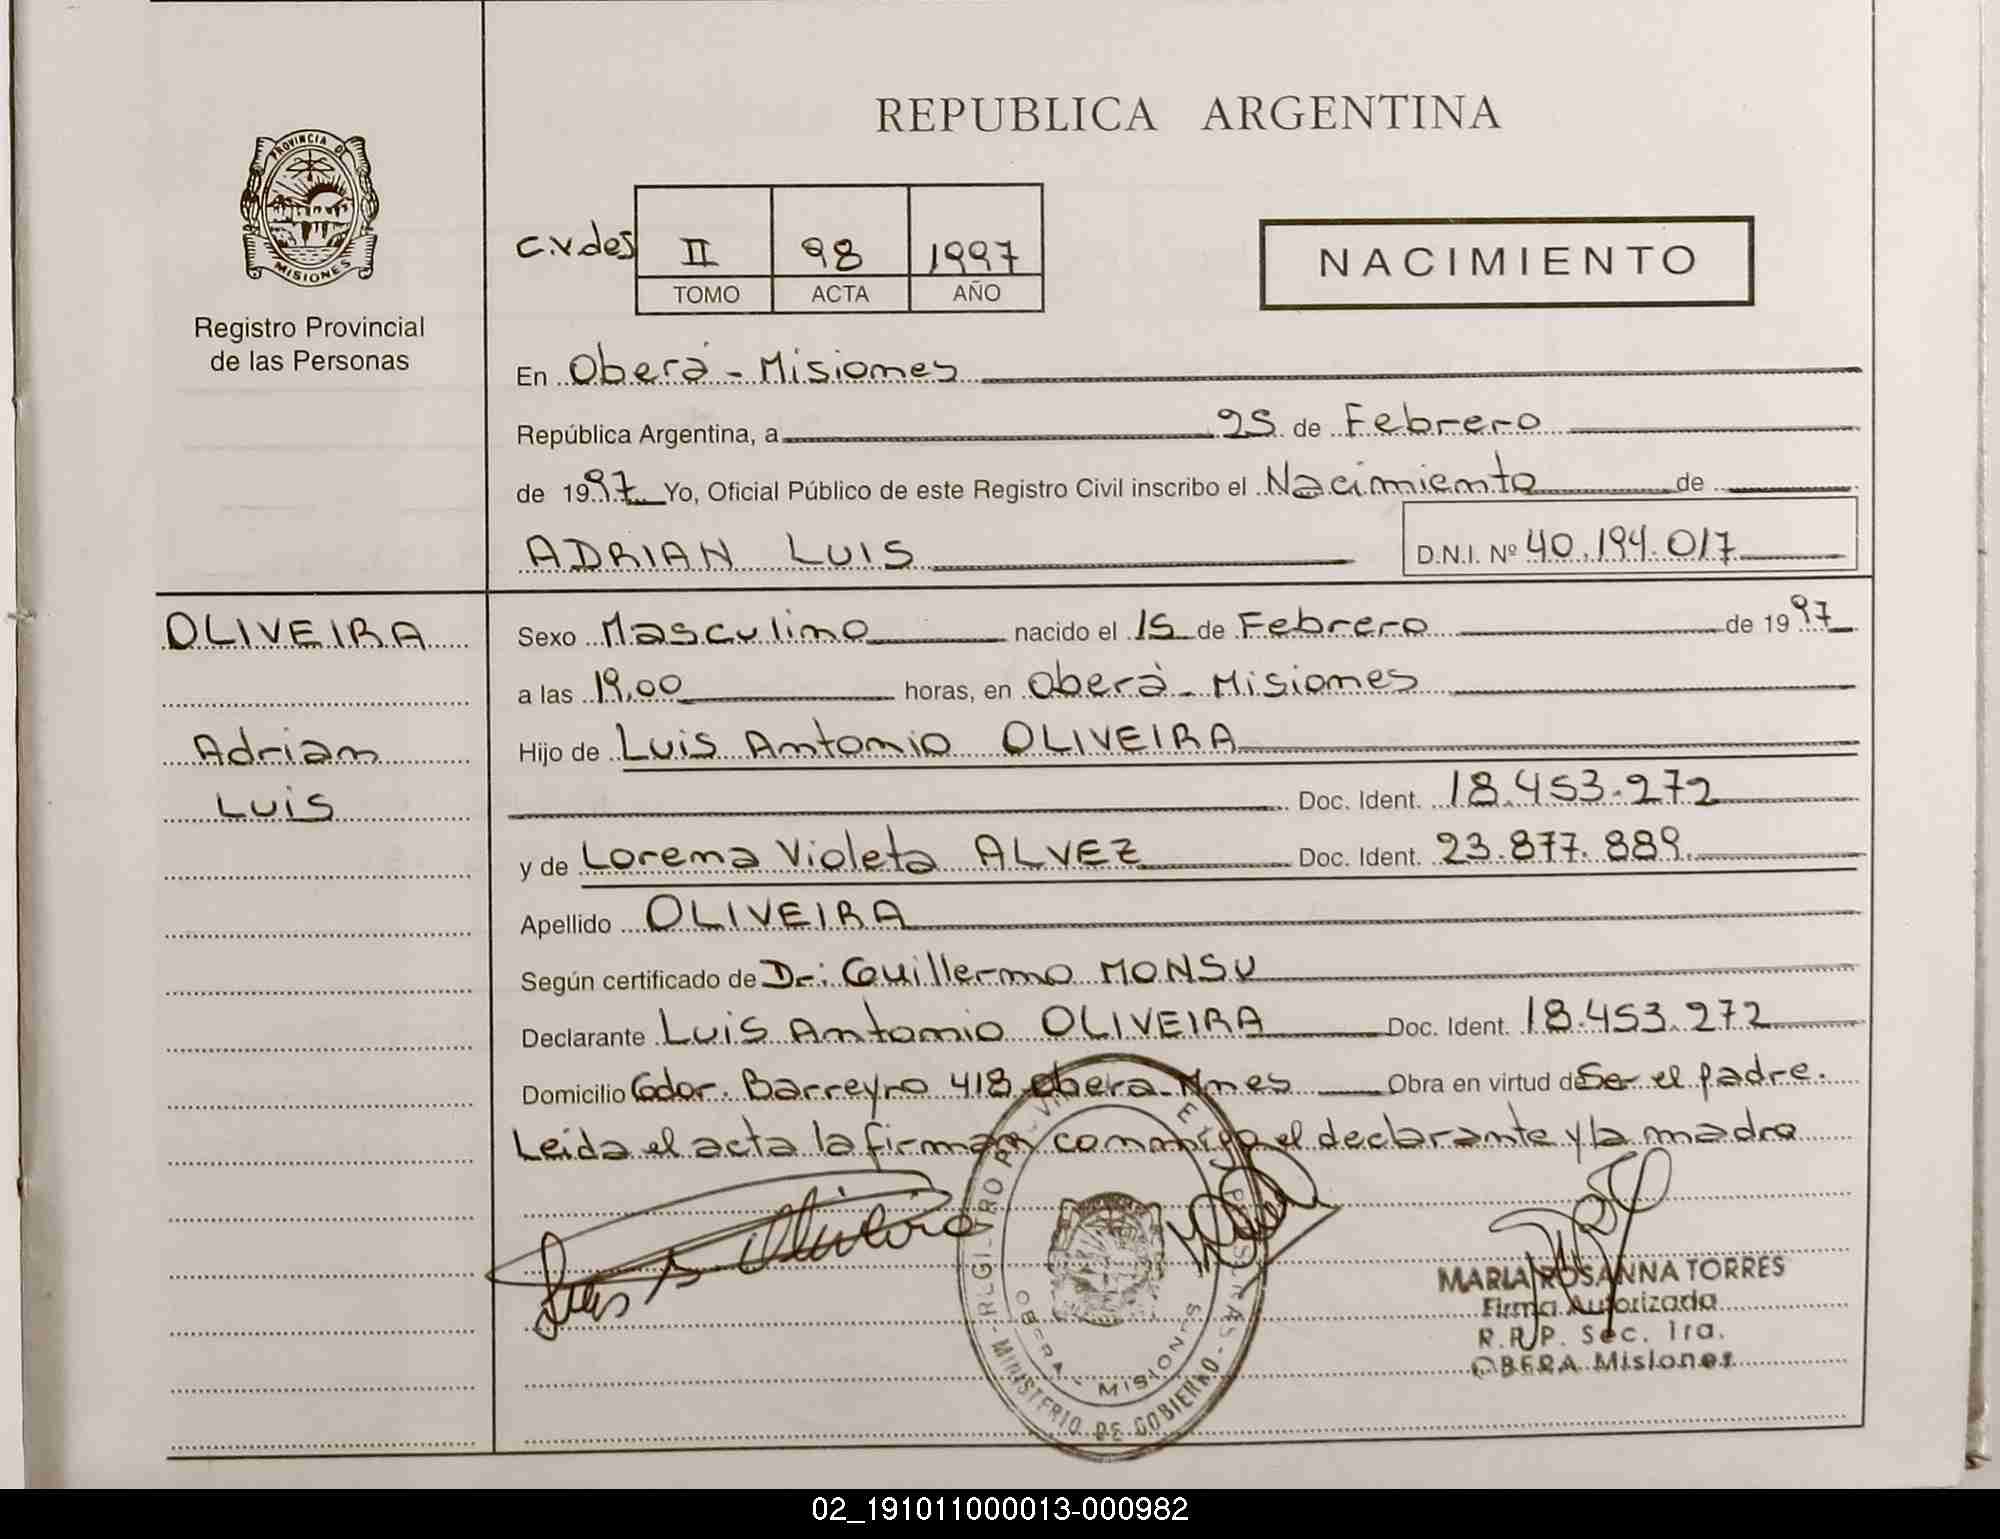 REPUBLICA ARGENTINA
PROVINCIA DE
MISIONES
Registro Provincial
de las Personas
c.v.des
II 98 1997
TOMO ACTA AÑO
NACIMIENTO
En Oberá - Misiones
República Argentina, a 25 de Febrero
de 1997 Yo, Oficial Público de este Registro Civil inscribo el Nacimiento de
ADRIAN LUIS D.N.I. Nº 40.194.017
OLIVEIRA
Adrian
Luis
Sexo Masculino nacido el 15 de Febrero de 1997
a las 19,00 horas, en Oberá - Misiones
Hijo de Luis Antonio OLIVEIRA
Doc. Ident. 18.453.272
y de Lorena Violeta ALVEZ Doc. Ident. 23.877.889.
Apellido OLIVEIRA
Según certificado de Dr: Guillermo MONSU
Declarante Luis Antonio OLIVEIRA Doc. Ident. 18.453.272
Domicilio Gdor. Barreyro 418 Obera - Mnes Obra en virtud de Ser el padre.
Leida el acta la firman conmigo el declarante y la madre
OBERA - MISIONES
MINISTERIO DE GOBIERNO
MARIA ROSANNA TORRES
Firma Autorizada
R.R.P. Sec. 1ra.
OBERA Misiones
02_191011000013-000982